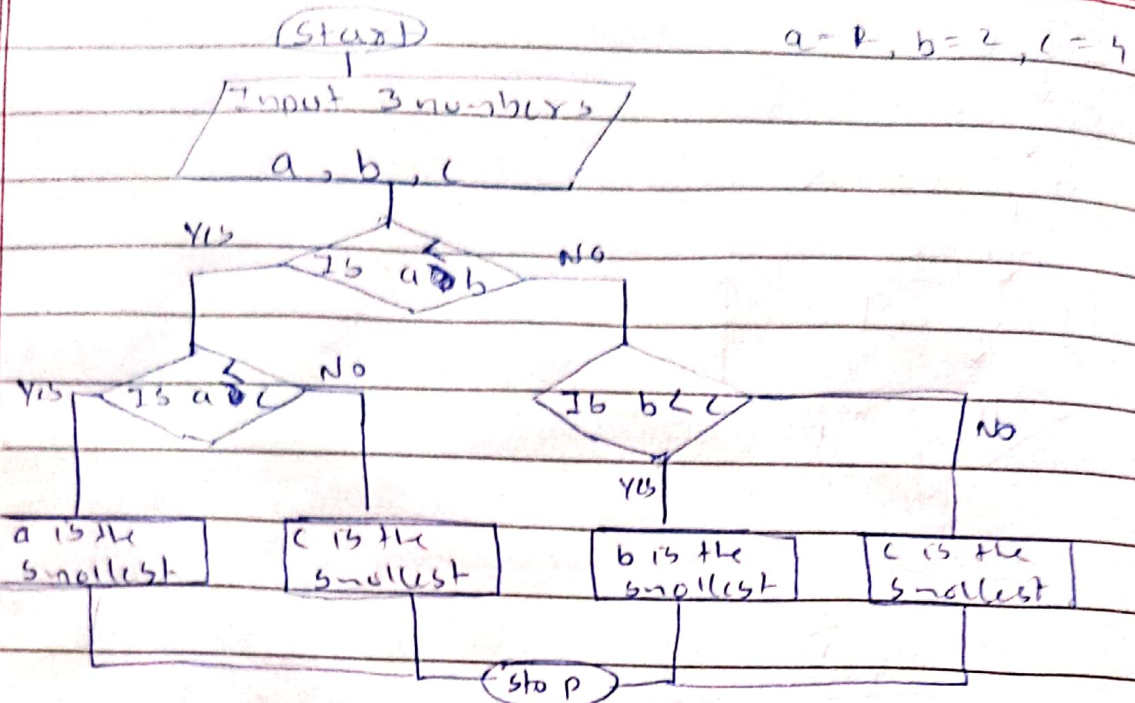 Start
a = , b = 2, c = 4
Input 3 numbers
a, b, c
Yes
Is a < b
NO
Yes
Is a < c
NO
Is b < c
No
Yes
a is the
smallest
c is the
smallest
b is the
smallest
c is the
smallest
stop